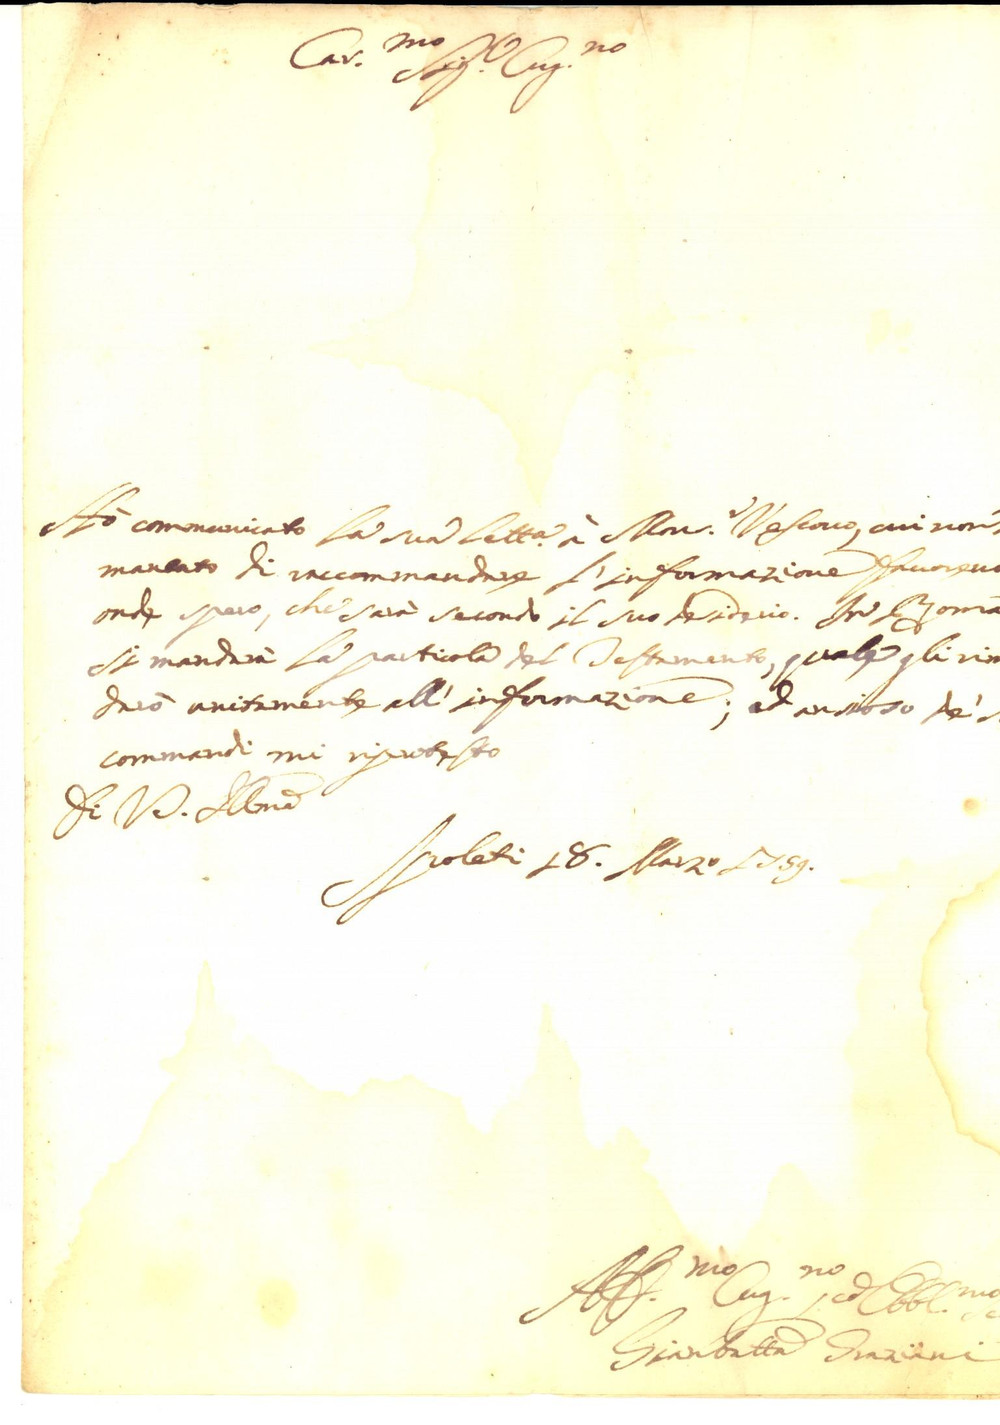 Car.mo Sig.r Cug.no
Hò communicato la sua lett.a à Mon.r Vescovo, cui non
mancato di raccommandare l'informazione favorevo
onde spero, che sarà secondo il suo desiderio. In Roma
si manderà la particola del Testamento, quale gli riman
darò unitamente all'informazione; ed ansioso de' s
commandi mi riprotesto
Di V. S. Ill.ma
Spoleti 18. Marzo 1759.
Aff.mo Cug.no ed Obbl.mo
Giambatta Graziani